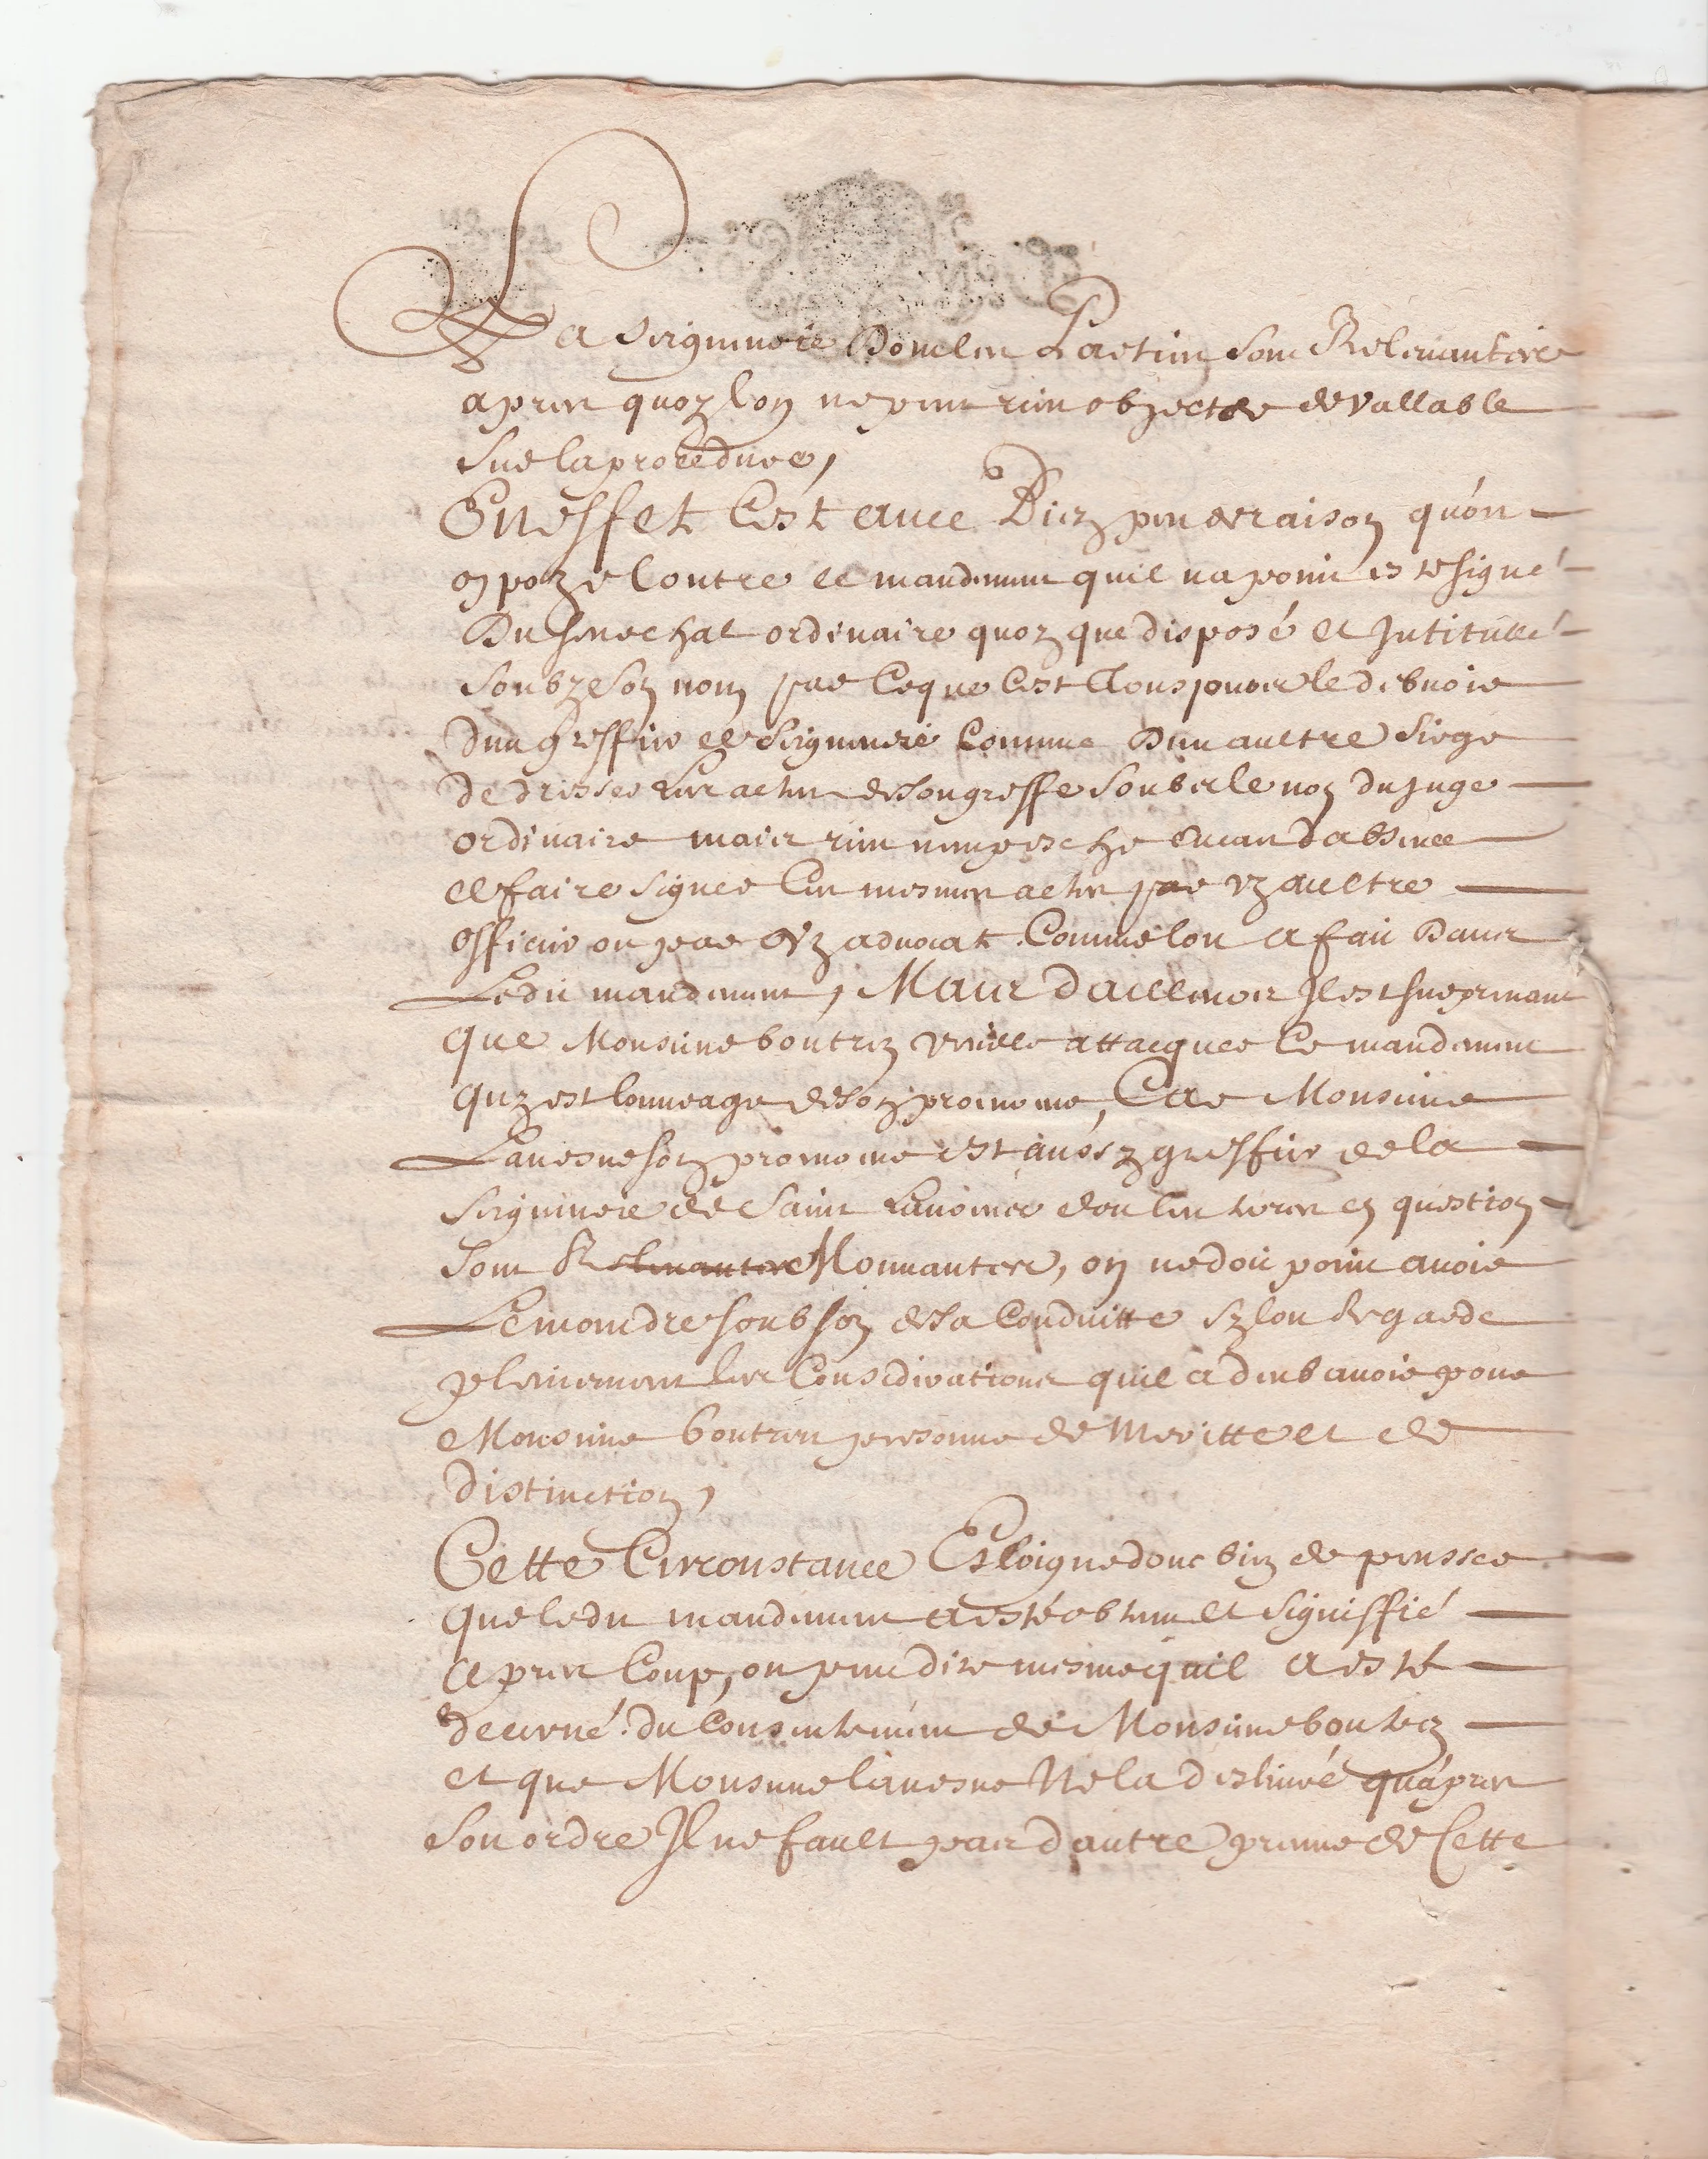 La seigneurie dont les parties sont Relevantes
apres quoy lon ne peut rien objecter de vallable
sur la procedure,
En effet c'est avec Bien peu de raison qu'on
opoze contre ce mandement quil na point esté signé
Du senechal ordinaire quoy que disposé et Intitullé
soubz son nom par ce que c'est tousjours le debvoir
dun greffier de seigneurie comme Dun aultre siege
de dresser les actes de son greffe soubs le nom du juge
ordinaire mais rien nempesche en cas d'absence
de faire signer les mesmes actes par un aultre
officier ou par un advocat comme lon a fait Dans
Ledit mandement, Mais d'ailleurs Il est surprenant
que Monsieur boutrez veuille attacquer ce mandement
quy est louvrage de son procureur, Car Monsieur
Lavesne son procureur est aussy greffier de la
seigneurie de Saint dou les terres en question
sont R Mouvantes, on ne doit point avoir
Le moindre soubson de sa Conduitte sy lon Regarde
plainement les Considerations quil a deub avoir pour
Monsieur boutrez personne de Meritte et de
distinction,
Cette Circonstance Esloigne donc bien de penser
que ledit mandement a esté obtenu et signiffié
apres Coup, on peut dire mesme quil a esté
decerné du Consentement de Monsieur boutrez
et que Monsieur lavesne Ne la deslivré quápres
son ordre Il ne fault pas d'autre preuve de Cette